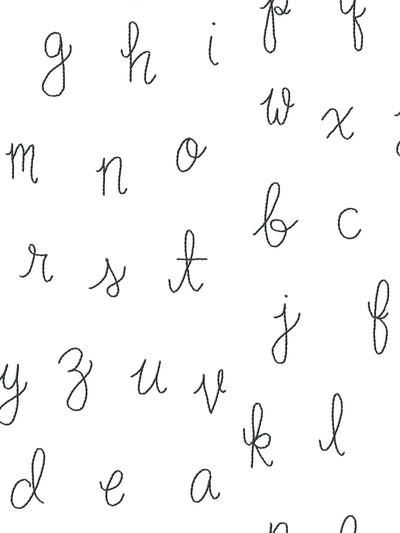 g h i
p q
w x
m n o
b c
r s t
j f
y z u v
k l
d e a